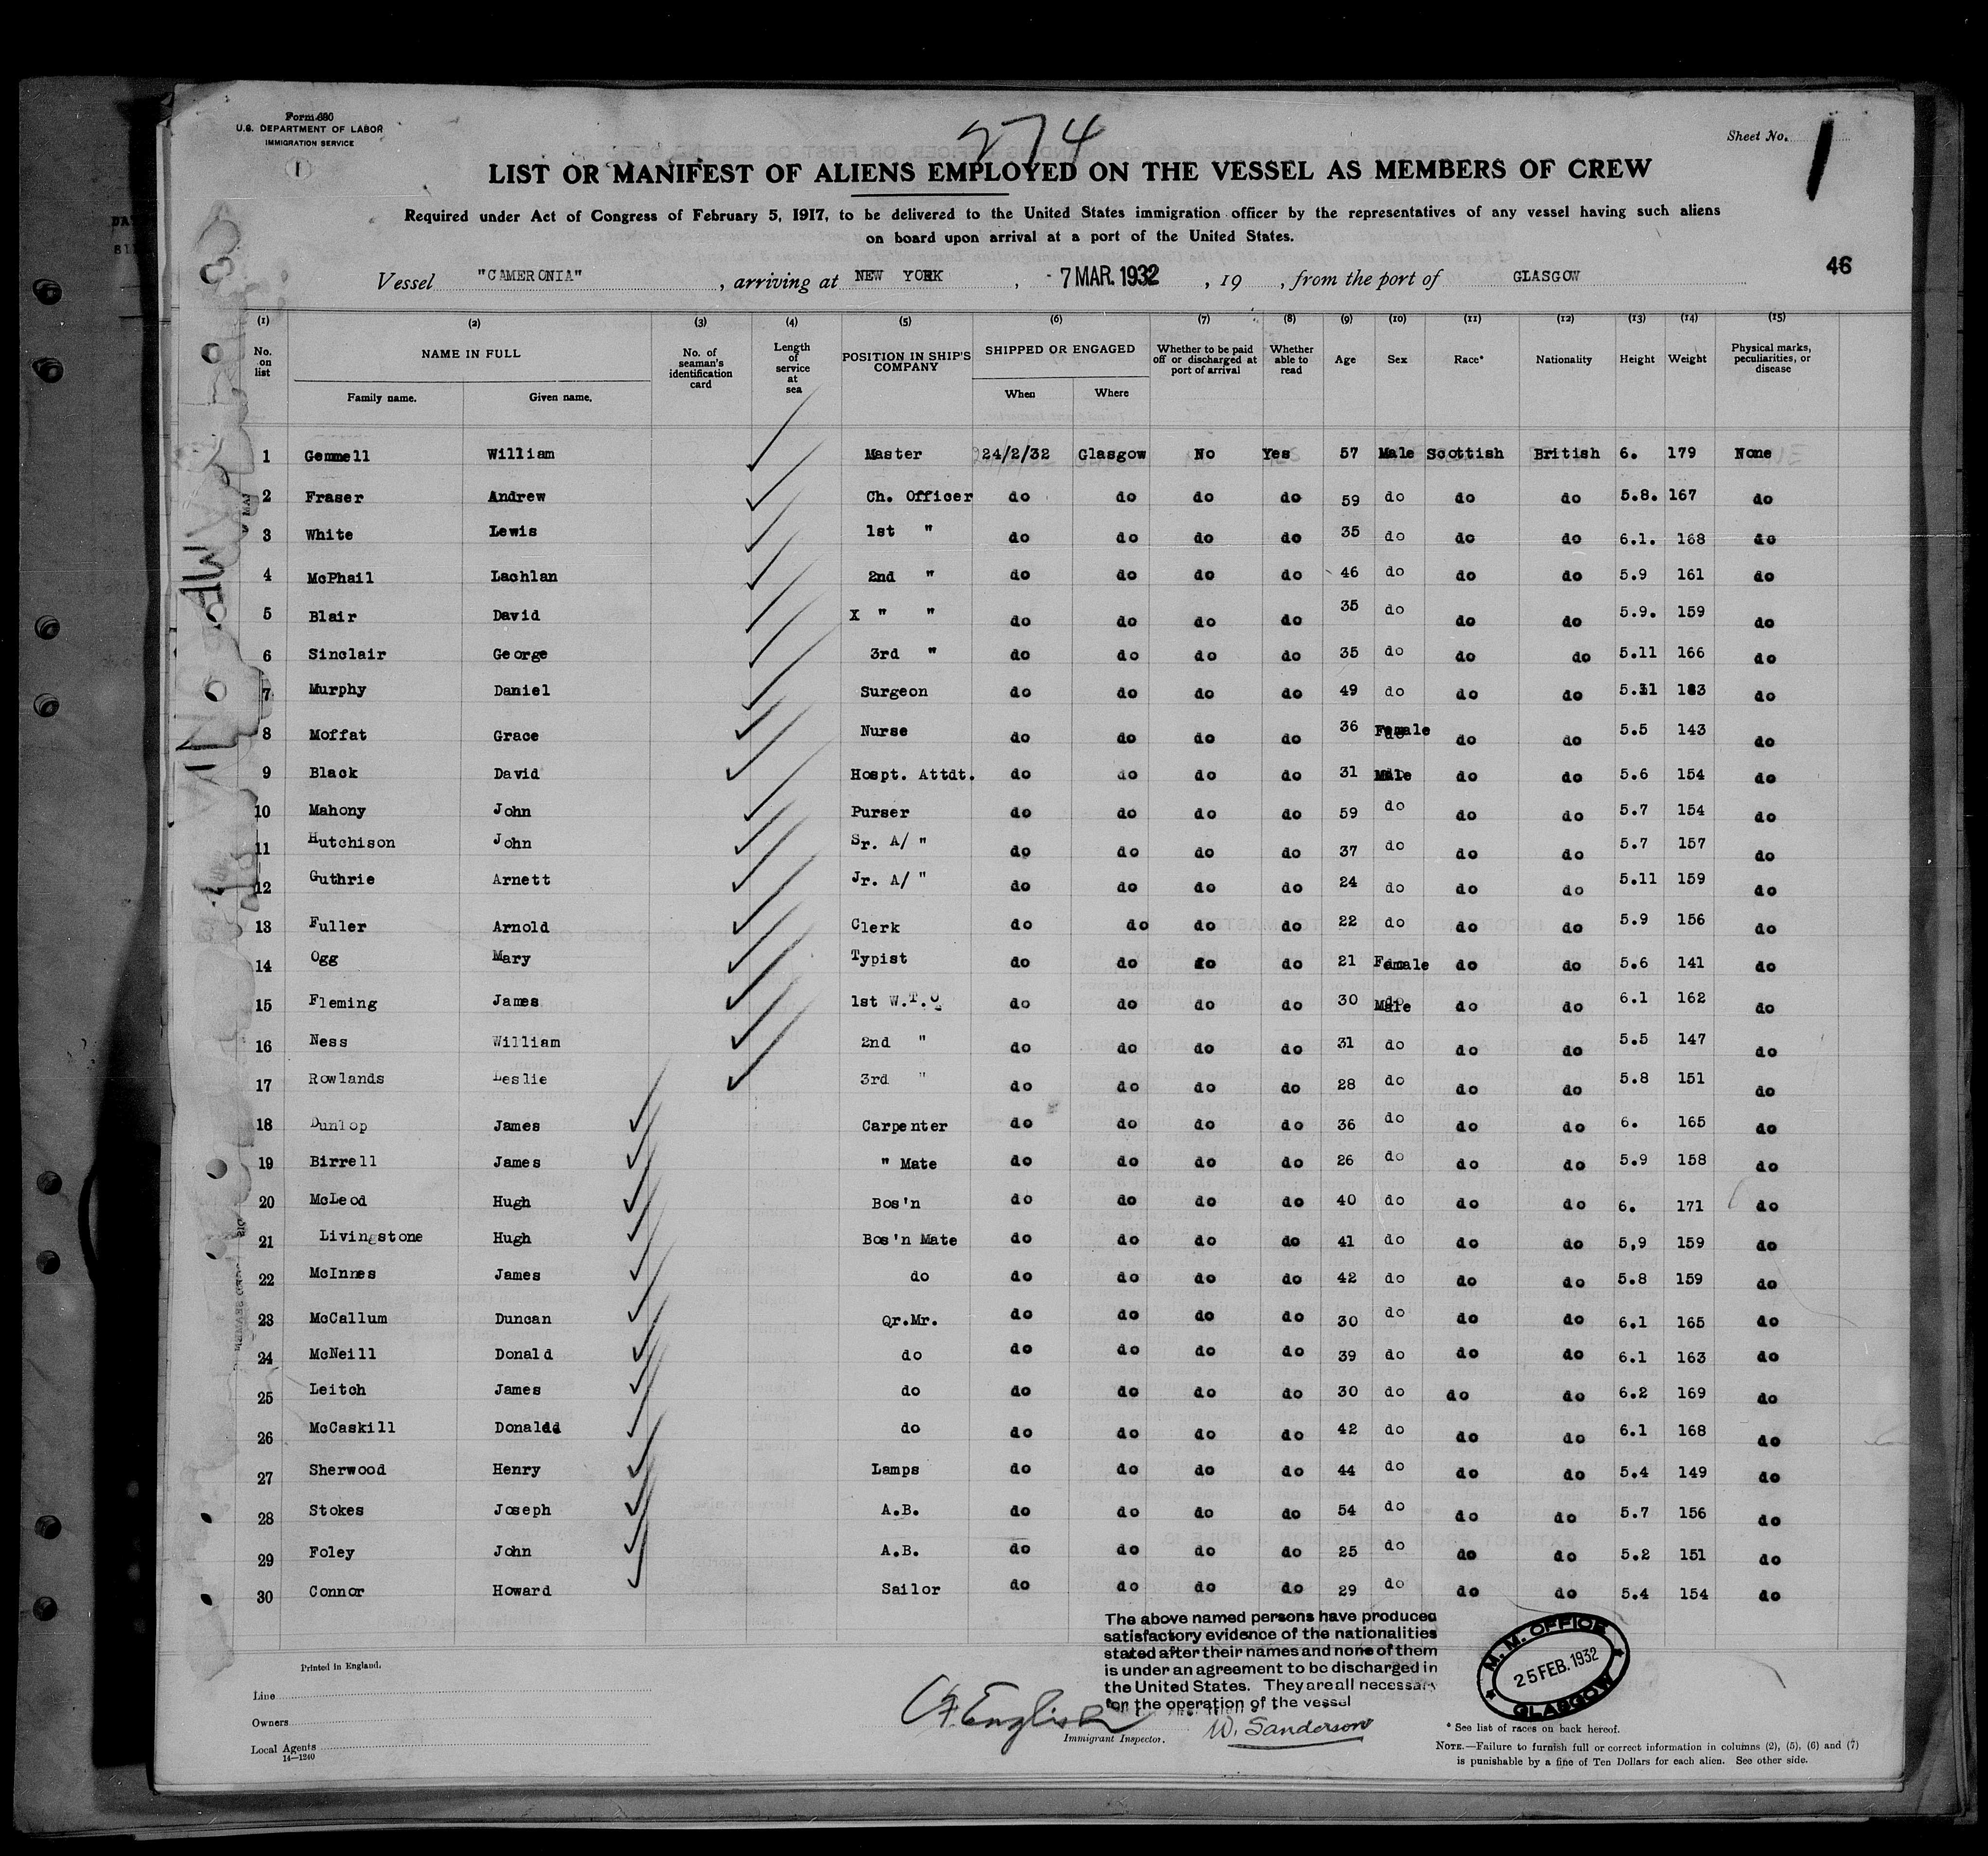 Form 680
U.S. DEPARTMENT OF LABOR
IMMIGRATION SERVICE
1
274
Sheet No. 1
LIST OR MANIFEST OF ALIENS EMPLOYED ON THE VESSEL AS MEMBERS OF CREW
Required under Act of Congress of February 5, 1917, to be delivered to the United States immigration officer by the representatives of any vessel having such aliens
on board upon arrival at a port of the United States.
46
Vessel "CAMERONIA" , arriving at NEW YORK , -7 MAR. 1932 , 19 , from the port of GLASGOW
(1) (2) (3) (4) (5) (6) (7) (8) (9) (10) (11) (12) (13) (14) (15)
No. on list NAME IN FULL Family name. Given name. No. of seaman's identification card Length of service at sea POSITION IN SHIP'S COMPANY SHIPPED OR ENGAGED When Where Whether to be paid off or discharged at port of arrival Whether able to read Age Sex Race* Nationality Height Weight Physical marks, peculiarities, or disease
1 Gemmell William Master 24/2/32 Glasgow No Yes 57 Male Scottish British 6. 179 None
2 Fraser Andrew Ch. Officer do do do do 59 do do do 5.8. 167 do
3 White Lewis 1st " do do do do 35 do do do 6.1. 168 do
4 McPhail Lachlan 2nd " do do do do 46 do do do 5.9 161 do
5 Blair David X " " do do do do 35 do do do 5.9. 159 do
6 Sinclair George 3rd " do do do do 35 do do do 5.11 166 do
7 Murphy Daniel Surgeon do do do do 49 do do do 5.11 183 do
8 Moffat Grace Nurse do do do do 36 Female do do 5.5 143 do
9 Black David Hospt. Attdt. do do do do 31 Male do do 5.6 154 do
10 Mahony John Purser do do do do 59 do do do 5.7 154 do
11 Hutchison John Sr. A/ " do do do do 37 do do do 5.7 157 do
12 Guthrie Arnett Jr. A/ " do do do do 24 do do do 5.11 159 do
13 Fuller Arnold Clerk do do do do 22 do do do 5.9 156 do
14 Ogg Mary Typist do do do do 21 Female do do 5.6 141 do
15 Fleming James 1st W.T.O do do do do 30 Male do do 6.1 162 do
16 Ness William 2nd " do do do do 31 do do do 5.5 147 do
17 Rowlands Leslie 3rd " do do do do 28 do do do 5.8 151 do
18 Dunlop James Carpenter do do do do 36 do do do 6. 165 do
19 Birrell James " Mate do do do do 26 do do do 5.9 158 do
20 McLeod Hugh Bos'n do do do do 40 do do do 6. 171 do
21 Livingstone Hugh Bos'n Mate do do do do 41 do do do 5,9 159 do
22 McInnes James do do do do do 42 do do do 5.8 159 do
23 McCallum Duncan Qr.Mr. do do do do 30 do do do 6.1 165 do
24 McNeill Donald do do do do do 39 do do do 6.1 163 do
25 Leitch James do do do do do 30 do do do 6.2 169 do
26 McCaskill Donaldd do do do do do 42 do do do 6.1 168 do
27 Sherwood Henry Lamps do do do do 44 do do do 5.4 149 do
28 Stokes Joseph A.B. do do do do 54 do do do 5.7 156 do
29 Foley John A.B. do do do do 25 do do do 5.2 151 do
30 Connor Howard Sailor do do do do 29 do do do 5.4 154 do
The above named persons have produced
satisfactory evidence of the nationalities
stated after their names and none of them
is under an agreement to be discharged in
the United States. They are all necessary
for the operation of the vessel
M.M. OFFICE
25 FEB. 1932
GLASGOW
Printed in England.
Line
Owners
Local Agents
14—1240
English
Immigrant Inspector.
W. Sanderson
* See list of races on back hereof.
NOTE.—Failure to furnish full or correct information in columns (2), (5), (6) and (7)
is punishable by a fine of Ten Dollars for each alien. See other side.